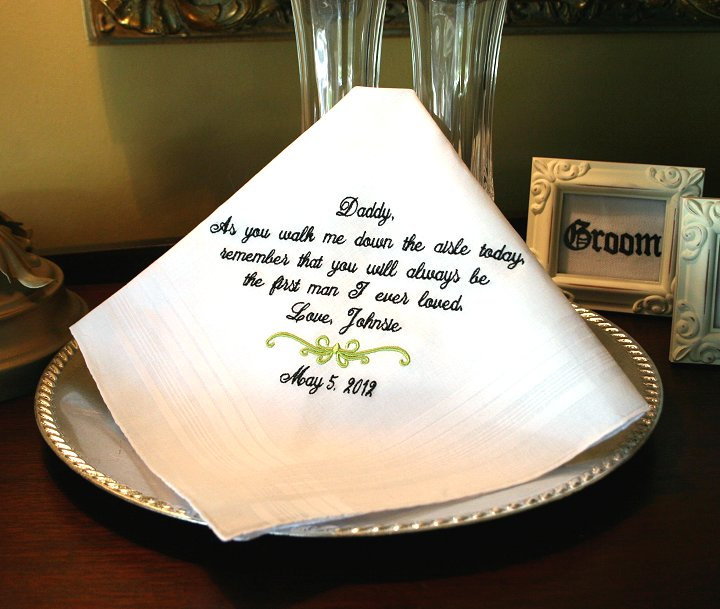 Daddy,
As you walk me down the aisle today,
remember that you will always be
the first man I ever loved.
Love, Johnsie
May 5, 2012
Groom